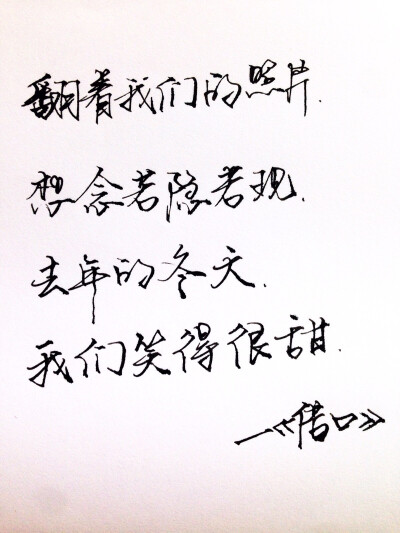 翻着我们的照片.
想念若隐若现.
去年的冬天.
我们笑得很甜.
—《借口》